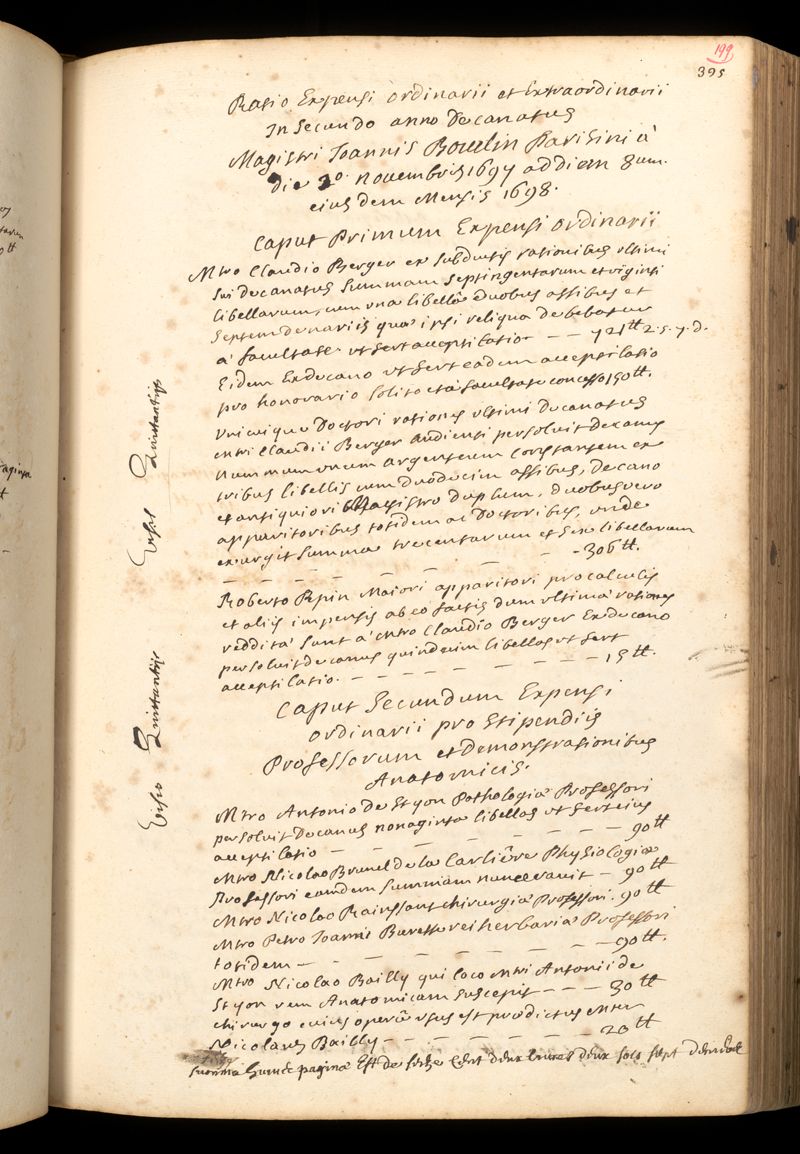 199
395
Ratio Expensi ordinarii et Extraordinarii
In Secundo anno Decanatus
Magistri Ioannis Boudin Parisini à
die 3º. novembris 1697 ad diem 8um.
eiusdem Mensis 1698.
Caput Primum Expensi ordinarii
Mtro Claudio Berger ex subductis rationibus ultimi
sui decanatus summam septingentarum et viginti
libellarum, cum una libella duobus assibus et
septem denariis quæ ipsi reliqua debebatur
a facultate ut fert acceptilatio — — 721tt 2. s. 7. d.
Eidem Exdecano ut fert eadem acceptilatio
pro honorario solito et à facultate concesso 150tt.
Unicuique Doctori rationes ultimi decanatus
Mtri Claudii Berger audienti persoluit decanus
nummum unum argenteum constantem ex
tribus libellis cum duodecim assibus, decano
et antiquiori Magistro duplum, duobus vero
apparitoribus totidem ac Doctoribus, unde
exurgit summa trecentarum et sex libellarum
— — — — — — — -306tt.
Roberto Pepin Maiori apparitori pro calculis
et aliis impensis ab eo factis dum ultimæ rationes
redditæ sunt à Mtro Claudio Berger Exdecano
persoluit decanus quindecim libellas ut fert
acceptilatio. — — — — — — — — 15tt.
Caput Secundum Expensi
ordinarii pro Stipendiis
Professorum et Demonstrationibus
Anatomicis.
Mtro Antonio de St yon Pathologiæ Professori
persoluit Decanus nonaginta libellas ut fert eius
acceptilatio — — — — — — — — 90tt
Mtro Nicolao Brunel de la Carliere Physiologiæ
Professori eamdem summam numeravit — 90tt
Mtro Nicolao Rainssant chirurgiæ Professori. 90tt
Mtro Petro Ioanni Burette rei herbariæ Professori
totidem — — — — — — — — —90tt.
Mtro Nicolao Bailly qui loco Mtri Antonii de
St yon rem Anatomicam suscepit — — — 30tt
chirurgo cuius opera usus est prædictus Mter
Nicolaus Bailly — — — — — — — 20tt
summa huius paginæ Est de seize Cent deux livres deux sols sept deniers